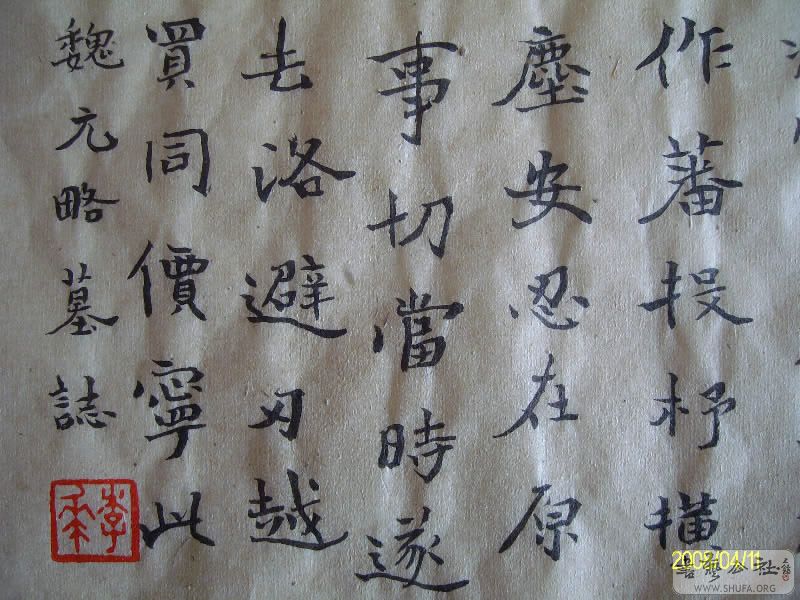 作蕃投杼橫
塵安忍在原
事切當時遂
去洛避刃越
買同價寧此
魏元略墓誌
2008/04/11
書藝公社
WWW.SHUFA.ORG